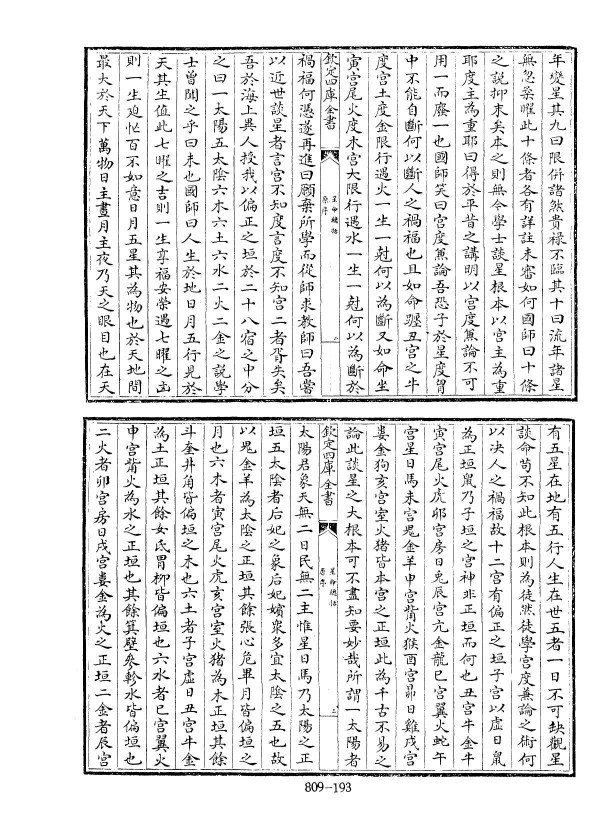 年變星其九曰限併諸煞貴祿不臨其十曰流年諸星
無忽氣曜此十條者各有詳註未審如何國師曰十條
之説抑末矣本之則無令學士談星根本以宮主為重
耶度主為重耶曰得於平昔之講明以宮度兼論不可
用一而廢一也國師笑曰宮度兼論吾恐子於星度胃
中不能自斷何以斷人之禍福也且如命躔丑宮之牛
度宮土度金限行遇火一生一尅何以為斷又如命坐
寅宮尾火度木宮大限行遇水一生一尅何以為斷於
欽定四庫全書
星命總括
原序
二
禍福何憑遂再進曰願棄所學而從師求教師曰吾嘗
以近世談星者言宮不知度言度不知宮二者胥失矣
吾於海上異人授我以偏正之垣於二十八宿之中分
之曰一太陽五太陰六木六土六水二火二金之説學
士曾聞之乎曰未也國師曰人生於地日月五行見於
天其生值此七曜之吉則一生享福安榮遇七曜之凶
則一生迍忙百不如意日月五星其為物也於天地間
最大於天下萬物日主晝月主夜乃天之眼目也在天
有五星在地有五行人生在世五者一日不可缺觀星
談命苟不知此根本則為徒然徒學宮度兼論之術何
以决人之禍福故十二宮有偏正之垣子宮以虚日鼠
為正垣鼠乃子垣之宮神非正垣而何也丑宮牛金牛
寅宮尾火虎卯宮房日兎辰宮亢金龍巳宮翼火蛇午
宮星日馬未宮鬼金羊申宮觜火猴酉宮昴日雞戌宮
婁金狗亥宮室火猪皆本宮之正垣此為千古不易之
論此談星之大根本可不盡知要妙哉所謂一太陽者
欽定四庫全書
星命總括
原序
三
太陽君象天無二日民無二主惟星日馬乃太陽之正
垣五太陰者后妃之象后妃嬪衆多宜太陰之五也故
以鬼金羊為太陰之正垣其餘張心危畢月皆偏垣之
月也六木者寅宮尾火虎亥宮室火猪為木正垣其餘
斗奎井角皆偏垣之木也六土者子宮虚日丑宮牛金
為土正垣其餘女氐胃柳皆偏垣也六水者巳宮翼火
申宮觜火為水之正垣也其餘箕壁參軫水皆偏垣也
二火者卯宮房日戌宮婁金為火之正垣二金者辰宮
809-193